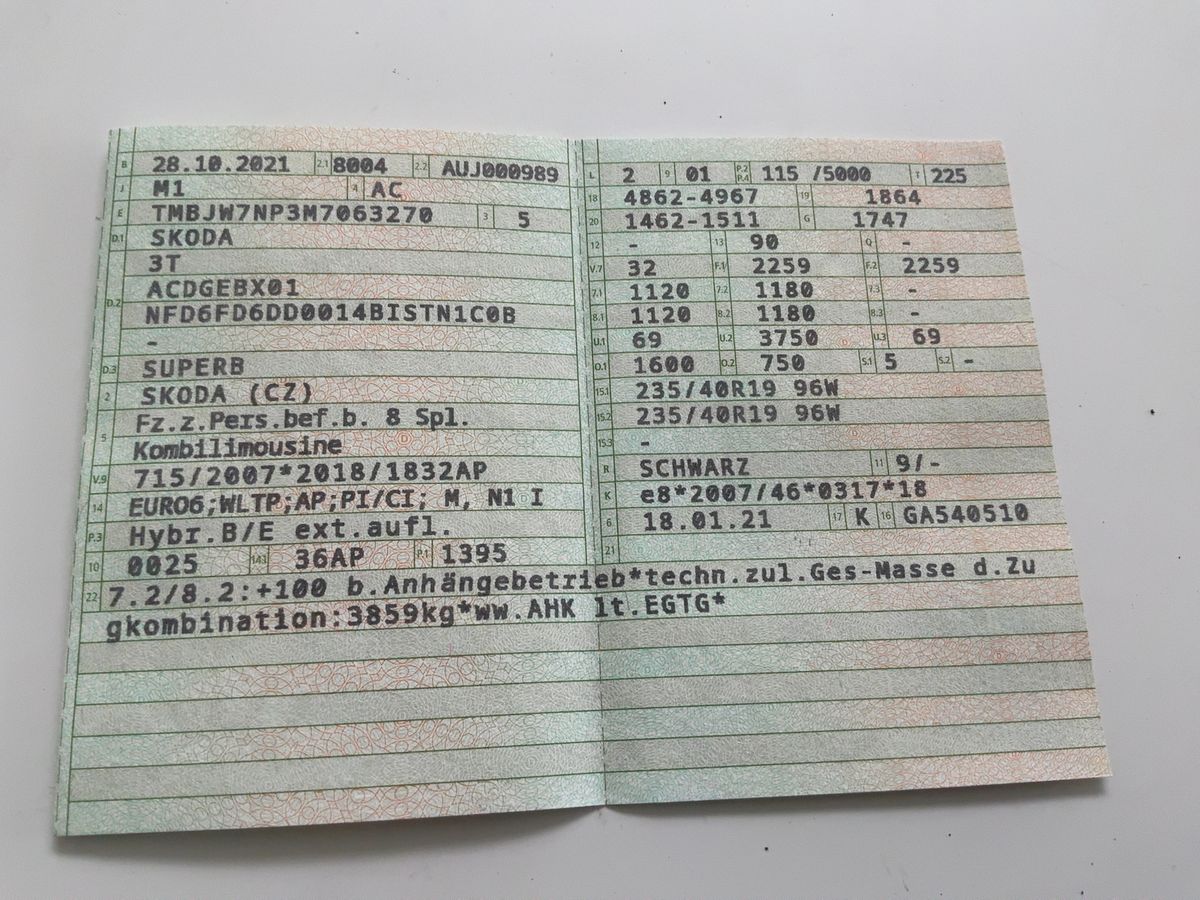 B 28.10.2021 2.1 8004 2.2 AUJ000989
J M1 4 AC
E TMBJW7NP3M7063270 3 5
D.1 SKODA
3T
D.2 ACDGEBX01
NFD6FD6DD0014BISTN1C0B
-
D.3 SUPERB
2 SKODA (CZ)
Fz.z.Pers.bef.b. 8 Spl.
5 Kombilimousine
V.9 715/2007*2018/1832AP
14 EURO6;WLTP;AP;PI/CI; M, N1 I
P.3 Hybr.B/E ext.aufl.
10 0025 14.1 36AP P.1 1395
L 2 9 01 P.2 P.4 115 /5000 T 225
18 4862-4967 19 1864
20 1462-1511 G 1747
12 - 13 90 Q -
V.7 32 F.1 2259 F.2 2259
7.1 1120 7.2 1180 7.3 -
8.1 1120 8.2 1180 8.3 -
U.1 69 U.2 3750 U.3 69
O.1 1600 O.2 750 S.1 5 S.2 -
15.1 235/40R19 96W
15.2 235/40R19 96W
15.3 -
R SCHWARZ 11 9/-
K e8*2007/46*0317*18
6 18.01.21 17 K 16 GA540510
21
22 7.2/8.2:+100 b.Anhängebetrieb*techn.zul.Ges-Masse d.Zu
gkombination:3859kg*ww.AHK lt.EGTG*